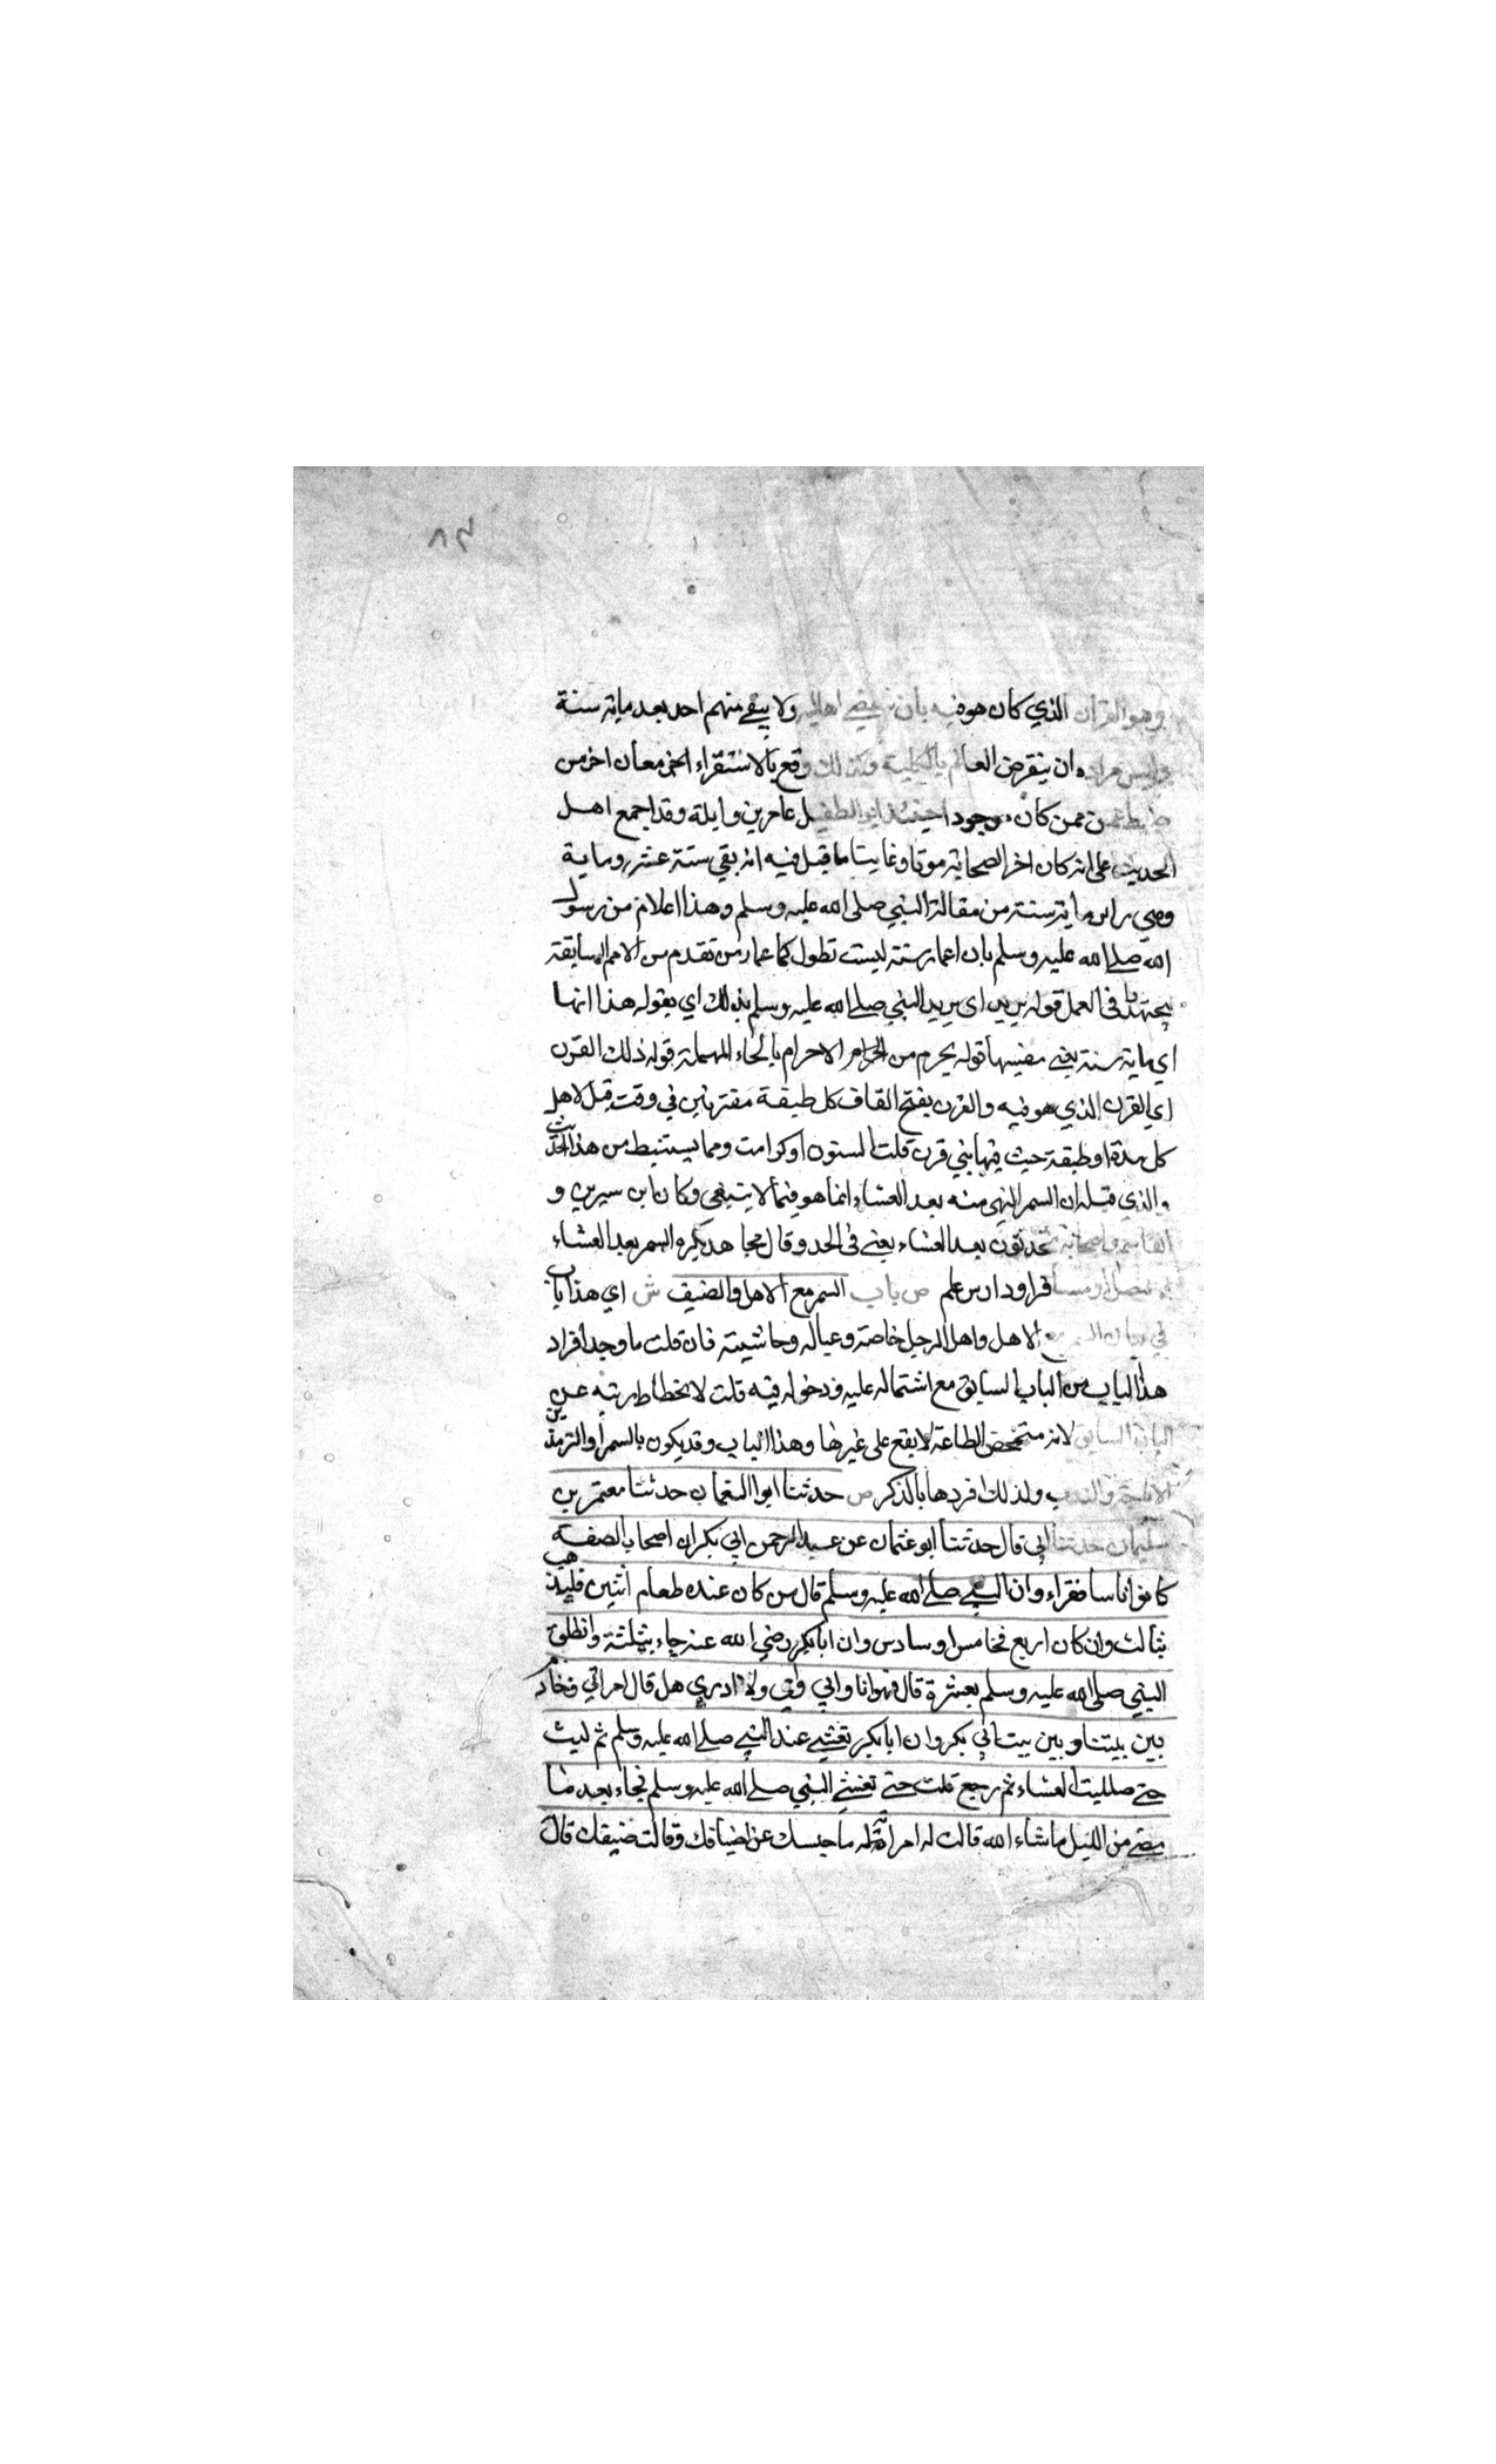 ٨٩
وهو القرن الذي كان هو فيه بان تنقضي اهاليه ولا يبقي منهم احد بعد ماية سنة
وليس مراده ان ينقرض العالم بالكلية وكذلك وقع بالاستقراء اخر من
ضبط عمره ممن كان موجودا حينئذ ابو الطفيل عامر بن وايلة وقد اجمع اهل
الحديث على انه كان اخر الصحابة موتا وغايت ما قيل فيه انه بقي ستة عشر وماية
وهي راس ماية سنة من مقالة النبي صلى الله عليه وسلم وهذا اعلام من رسول
الله صلى الله عليه وسلم بان اعمار سنته ليست تطول كاعمار من تقدم من الامم السابقة
ليجتهدوا في العمل قوله يريد اي يريد النبي صلى الله عليه وسلم بذلك اي بقوله هذا انها
اي ماية سنة يعني مضيها قوله يخرم من الاخرام بالخاء المهملة قوله ذلك القرن
اي القرن الذي هو فيه والقرن بفتح القاف كل طبقة مقترنين في وقت قيل لاهل
كل مدة او طبقة حيث فيها بني قرن قلت السنون او كرامت ومما يستنبط من هذا الحديث
والذي قبله ان السمر المنهي منه بعد العشاء انما هو فيما لا ينبغي وكان ابن سيرين و
القاسم واصحابه يتحدثون بعد العشاء يعني في الحد وقال مجاهد يكره السمر بعد العشاء
الا لمصل او مسافر او دارس علم ص باب السمر مع الاهل والضيف ش اي هذا باب
في بيان السمر مع الاهل واهل الرجل خاصته وعياله وحاشيته فان قلت ما وجه افراد
هذا الباب من الباب السابق مع اشتماله عليه ودخوله فيه قلت لانحطاط رتبه عن
الباب السابق لانه متمحض للطاعة لا يقع على غيرها وهذا الباب وقد يكون بالسمر
الاباحة والندب ولذلك افردها بالذكر ص حدثنا ابوا النعمان حدثنا معتمر بن
سليمان حدثنا ابي قال حدثنا ابو عثمان عن عبد الرحمن ابي بكر ان اصحاب الصفة
كانوا اناسا فقراء وان النبي صلى الله عليه وسلم قال من كان عنده طعام اثنين فليذهب
بثالث وان كان اربع فخامس او سادس وان ابا بكر رضي الله عنه جاء بثلثة وانطلق
النبي صلى الله عليه وسلم بعشرة قال فهو انا وابي وامي ولا ادري هل قال امراتي وخادم
بين بيتنا وبين بيت ابي بكر وان ابا بكر تعشى عند النبي صلى الله عليه وسلم ثم لبث
حتى صليت العشاء ثم رجع قلبث حتى تعشى النبي صلى الله عليه وسلم فجاء بعد ما
مضى من الليل ما شاء الله قالت له امراته ما حبسك عن اضيافك وقالت ضيفك قال